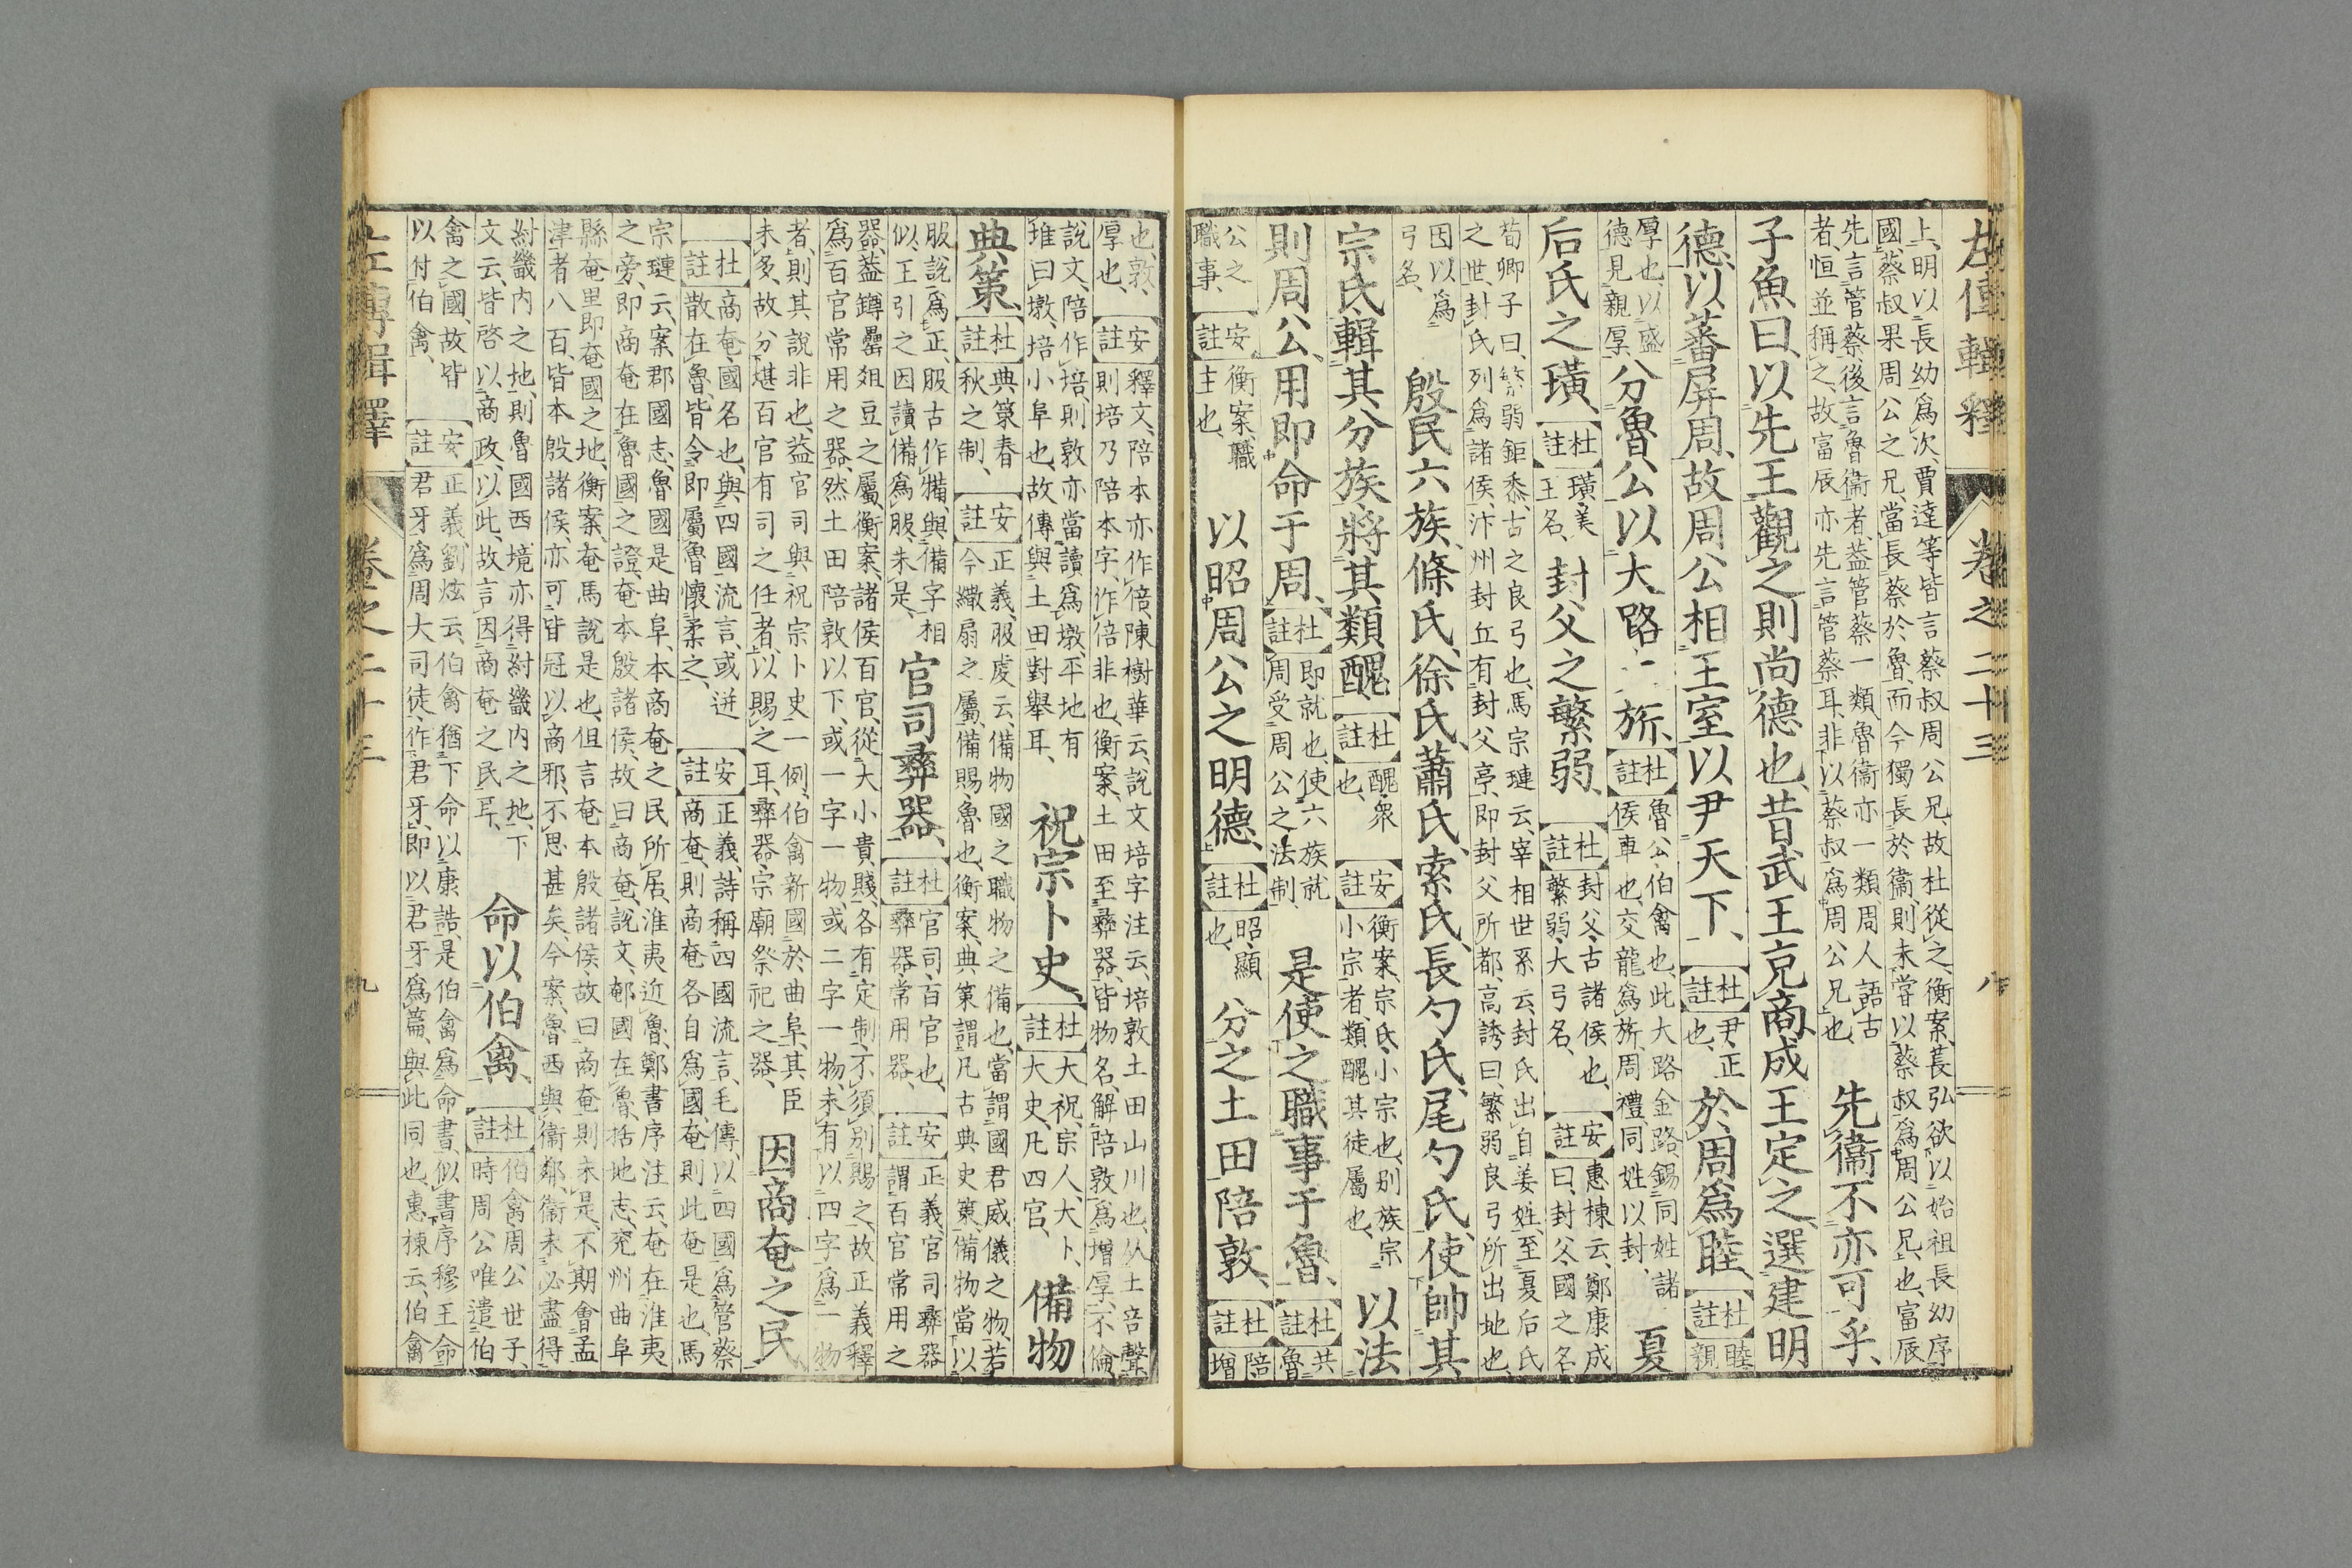 左傳輯釋 卷之二十三 八
上、明以長幼爲次、賈達等皆言蔡叔周公兄、故杜從之、衡案、萇弘欲以始祖長幼序
國、蔡叔果周公之兄、當長蔡於魯、而今獨長於衞、則未嘗以蔡叔爲周公兄也、富辰
先言管蔡、後言魯衞者、蓋管蔡一類、魯衞亦一類、周人語古
者、恒並稱之、故富辰亦先言管蔡耳、非以蔡叔爲周公兄也、
先衞不亦可乎、
子魚曰、以先王觀之則尚德也、昔武王克商、成王定之、選建明
德、以蕃屏周、故周公相王室、以尹天下、
杜註 尹、正也、
於周爲睦、
杜註 睦、親
厚也、以盛
德見親厚、
分魯公以大路 旂、
杜註 魯公、伯禽也、此大路、金路、錫同姓諸
侯車也、交龍爲旂、周禮、同姓以封、
夏
后氏之璜、
杜註 璜、美玉名、
封父之繁弱、
杜註 封父、古諸侯也、
繁弱、大弓名、
安註 惠棟云、鄭康成
曰、封父、國之名、
荀卿子曰、繁弱鉅黍、古之良弓也、馬宗璉云、宰相世系云、封氏出自姜姓、至夏后氏
之世、封氏列爲諸侯、汴州封丘有封父亭、即封父所都、高誘曰、繁弱良弓所出地也、
因以爲
弓名、
殷民六族、條氏、徐氏、蕭氏、索氏、長勺氏、尾勺氏、使帥其
宗氏、輯其分族、將其類醜、
杜註 醜、衆也、
安註 衡案、宗氏、小宗也、別族宗
小宗者、類醜、其徒屬也、
以法
則周公、用即命于周、
杜註 即、就也、使六族就
周受周公之法制、
是使之職事于魯、
杜註 共魯
公之
職事、
安註 衡案、職
主也、
以昭周公之明德、
杜註 昭、顯也、
分之土田陪敦、
杜註 陪、增
也、敦、
厚也、
安註 釋文、陪本亦作倍、陳樹華云、說文培字注云、培敦土田山川也、从土咅聲
則培乃陪本字、作倍非也、衡案、土田至彝器、皆物名、解陪敦爲增厚、不倫
說文、陪作培、則敦亦當讀爲墩、平地有
堆曰墩、培、小阜也、故傳與土田對舉耳、
祝宗卜史、
杜註 大祝、宗人、大卜、
大史、凡四官、
備物
典策、
杜註 典策、春
秋之制、
安註 正義、服虔云、備物、國之職物之備也、當謂國君威儀之物、若
今繖扇之屬、備賜魯也、衡案、典策、謂凡古典史策、備物當以
服說爲正、服古作犕、與備字相
似、王引之因讀備爲服、未是、
官司彝器、
杜註 官司、百官也、
彝器、常用器、
安註 正義、官司彝器
謂百官常用之
器、蓋鐏罍俎豆之屬、衡案、諸侯百官、從大小貴賤、各有定制、不須別賜之、故正義釋
爲百官常用之器、然土田陪敦以下、或一字一物、或二字一物、未有以四字爲一物
者、則其說非也、益官司與祝宗卜史一例、伯禽新國於曲阜、其臣
未多、故分堪百官有司之任者、以賜之耳、彝器、宗廟祭祀之器、
因商奄之民
杜註 商奄、國名也、與四國流言、或迸
散在魯、皆令即屬魯、懷柔之、
安註 正義、詩稱四國流言、毛傳、以四國爲管蔡
商奄、則商奄各自爲國、奄則此奄是也、馬
宗璉云、案郡國志、魯國是曲阜、本商奄之民所居、淮夷近魯、鄭書序注云、奄在淮夷
之旁、即商奄在魯國之證、奄本殷諸侯、故曰商奄、說文、郁國在魯、括地志、兗州曲阜
縣奄里、即奄國之地、衡案、奄馬說是也、但言奄本殷諸侯、故曰商奄則未是、不期會孟
津者八百、皆本殷諸侯、亦可皆冠以商邪、不思甚矣、今案、魯西與衞鄰、衞未必盡得
紂畿內之地、則魯國西境亦得紂畿內之地、下
文云、皆啓以商政、以此、故言因商奄之民耳、
命以伯禽、
杜註 伯禽、周公世子、
時周公唯遣伯
禽之國、故皆
以付伯禽、
安註 正義、劉炫云、伯禽猶下命以康誥、是伯禽爲命書、似書序穆王命
君牙爲周大司徒、作君牙、即以君牙爲篇、與此同也、惠棟云、伯禽
左傳輯釋 卷之二十三 九